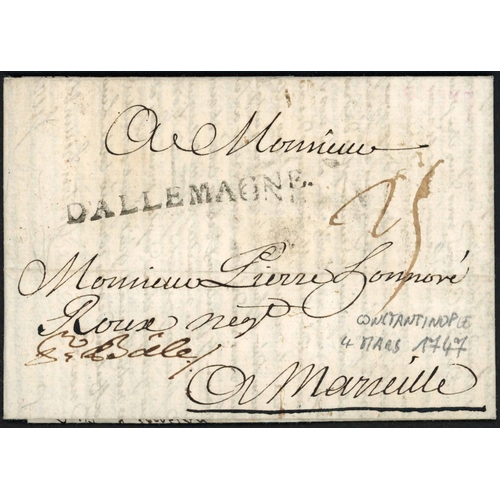 A Monsieur
DALLEMAGNE.
25
Monsieur Pierre honnoré
Roux negt
CONSTANTINOPLE
4 MARS 1747
Bâle /.
A Marseille